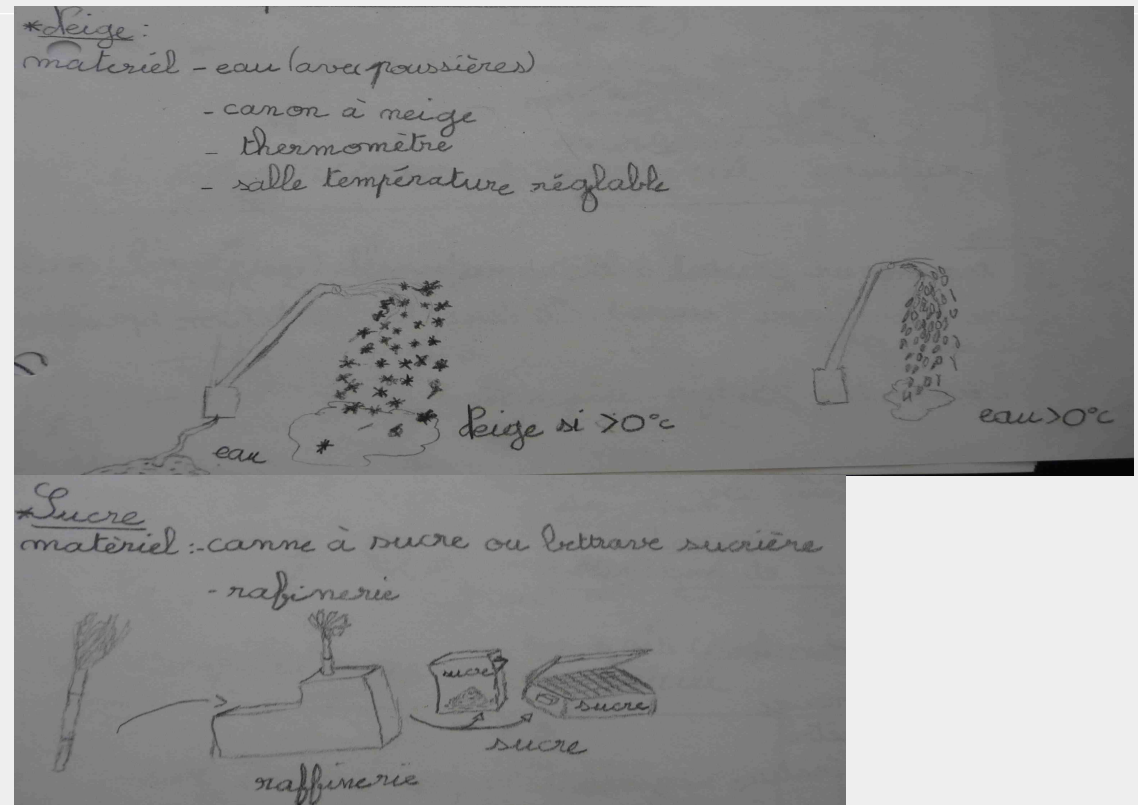 *Neige :
matériel - eau (avec poussières)
- canon à neige
- thermomètre
- salle température réglable
eau
Neige si >0°c
eau >0°c
*Sucre
matèriel :- canne à sucre ou bettrave sucrière
- rafinerie
sucre
sucre
sucre
raffinerie